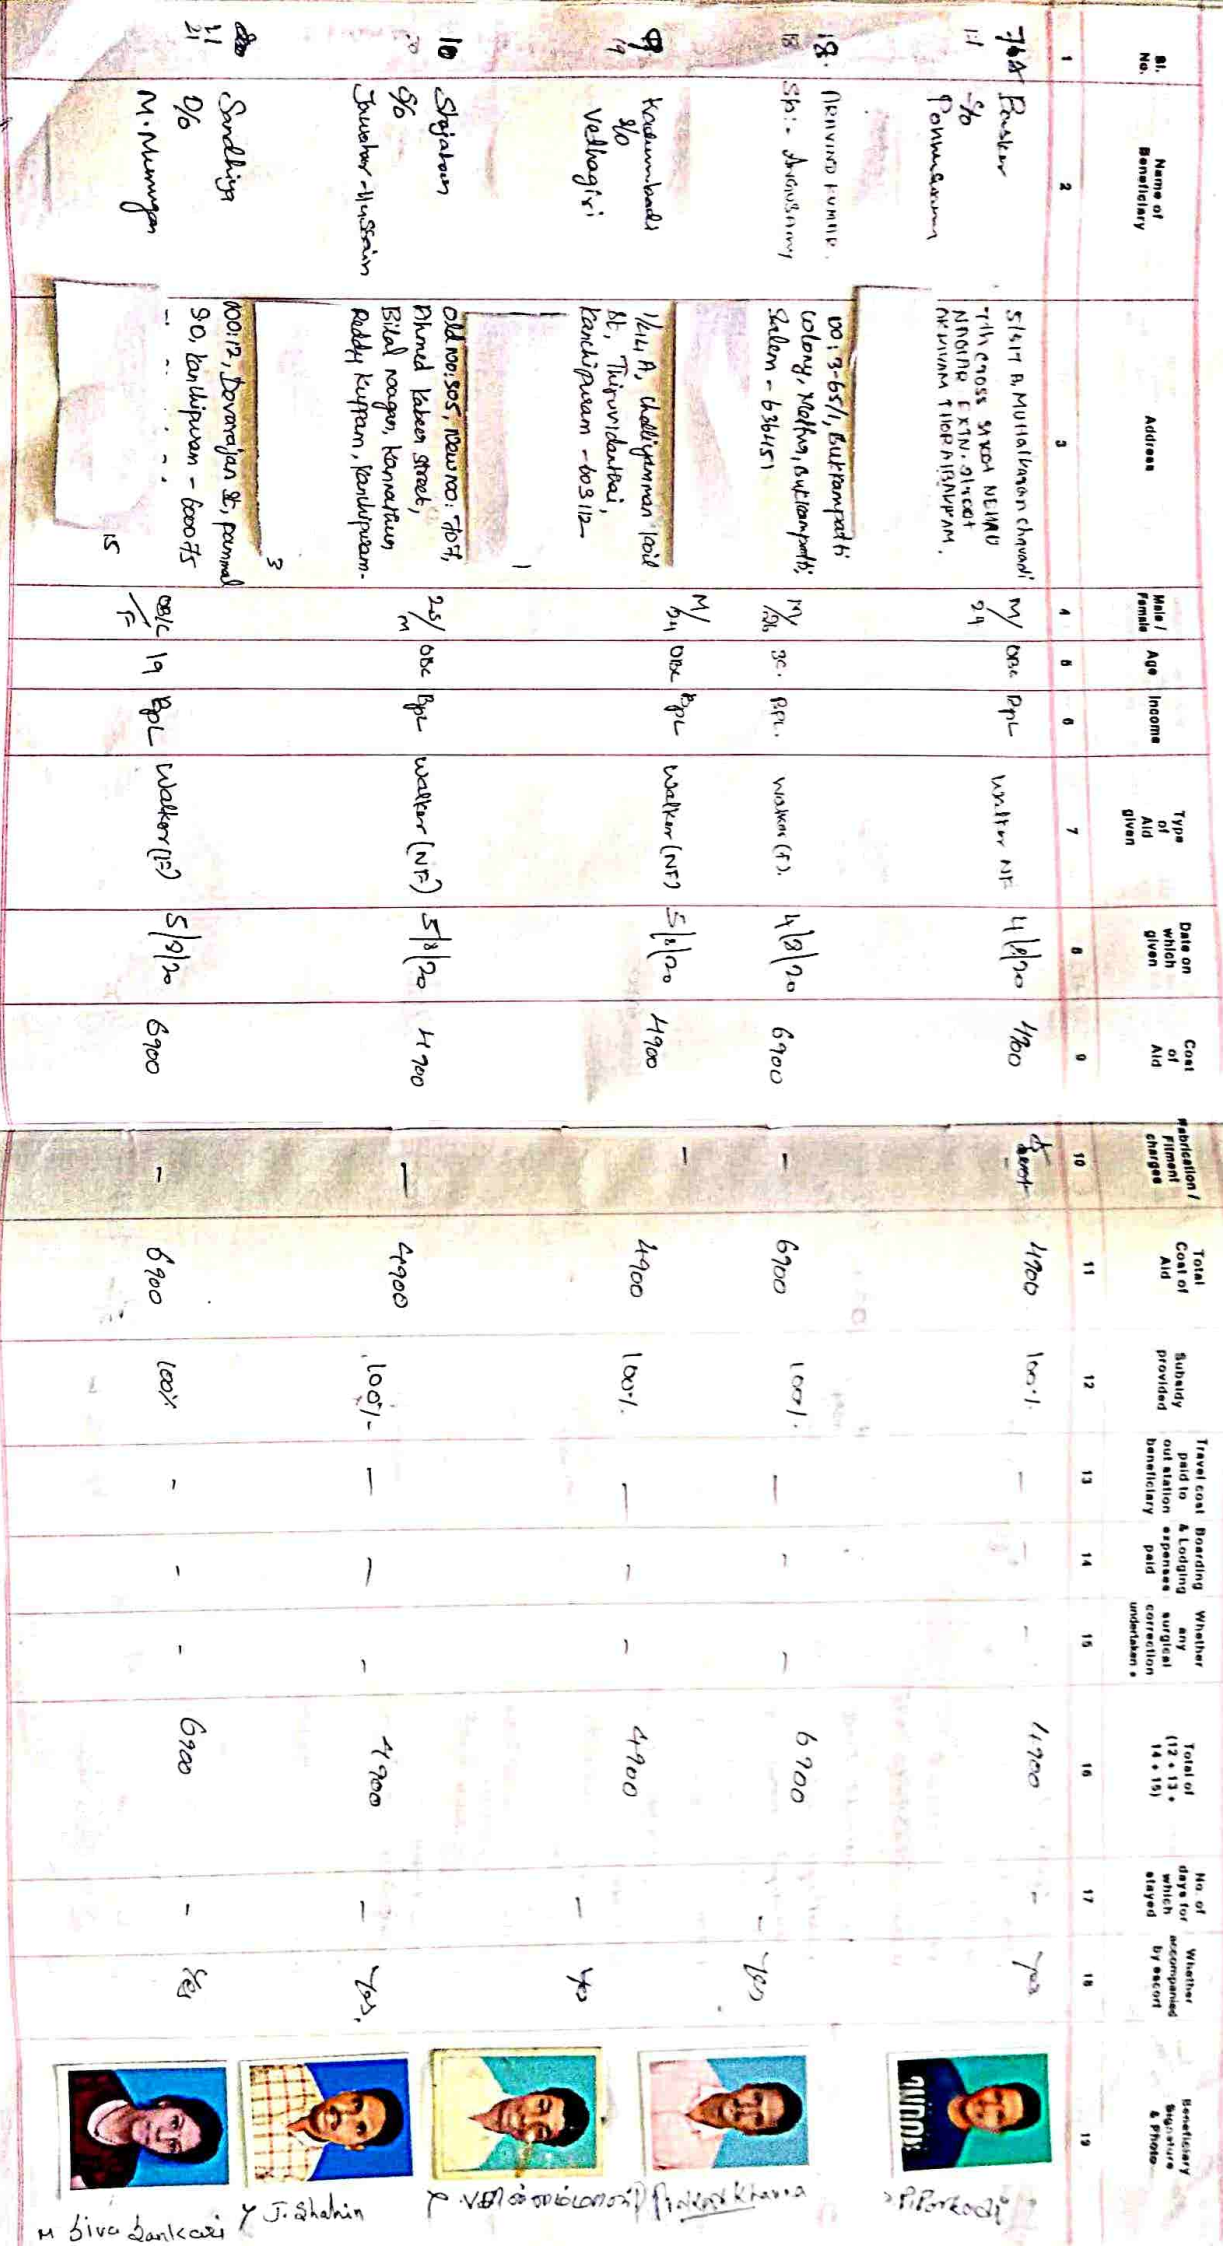 Sl. No.
Name of Beneficiary
Address
Male / Female
Age
Income
Type of Aid given
Date on which given
Cost of Aid
Fabrication / Fitment charges
Total Cost of Aid
Subsidy provided
Travel cost paid to out station beneficiary
Boarding & Lodging expenses paid
Whether any surgical correction undertaken
Total of (12 + 13 + 14 + 15)
No. of days for which stayed
Whether accompanied by escort
Beneficiary Signature & Photo
1 2 3 4 5 6 7 8 9 10 11 12 13 14 15 16 17 18 19
S/o
7th cross street NEHRU
M/ 29 OBC BPL Walker NF 4/8/20 4900
4900 100% - - - 4900 - Yes
P. Porkodi
18. ARAVIND KUMAR.
18
NO: 3-65/1, Bukkampatti
Colony, Mettur, Bukkampatti,
Salem - 636451
M/ SC. BPL. Walker (F). 4/8/20 6900
- 6900 100% - - - 6900 - Yes
9
19
S/o
Vedhagiri
1/244 A, Challiyamman koil
St, Thiruvidanthai,
Kanchipuram - 603112
M/ 24 OBC BPL Walker (NF) 5/8/20 4900
- 4900 100% - - - 4900 - Yes
1
10
20
S/o
Jawahar-Hussain
Old no: 505, New no: 707,
Ahmed Kabeer street,
Bilal nagar,
Reddy Kuppam, Kanchipuram-
25/ M OBC BPL Walker (NF) 5/8/20 4900
- 4900 100%- - - - 4900 - Yes,
J. Shahin
3
21
Sandhiya
D/o
M. Murugan
no: 12, Devarajan St, pammal
SO, Kanchipuram - 600075
OB/C /F 19 BPL Walker (F) 5/8/20 6900
- 6900 100% - - - 6900 - Yes
M Siva Sankari
15